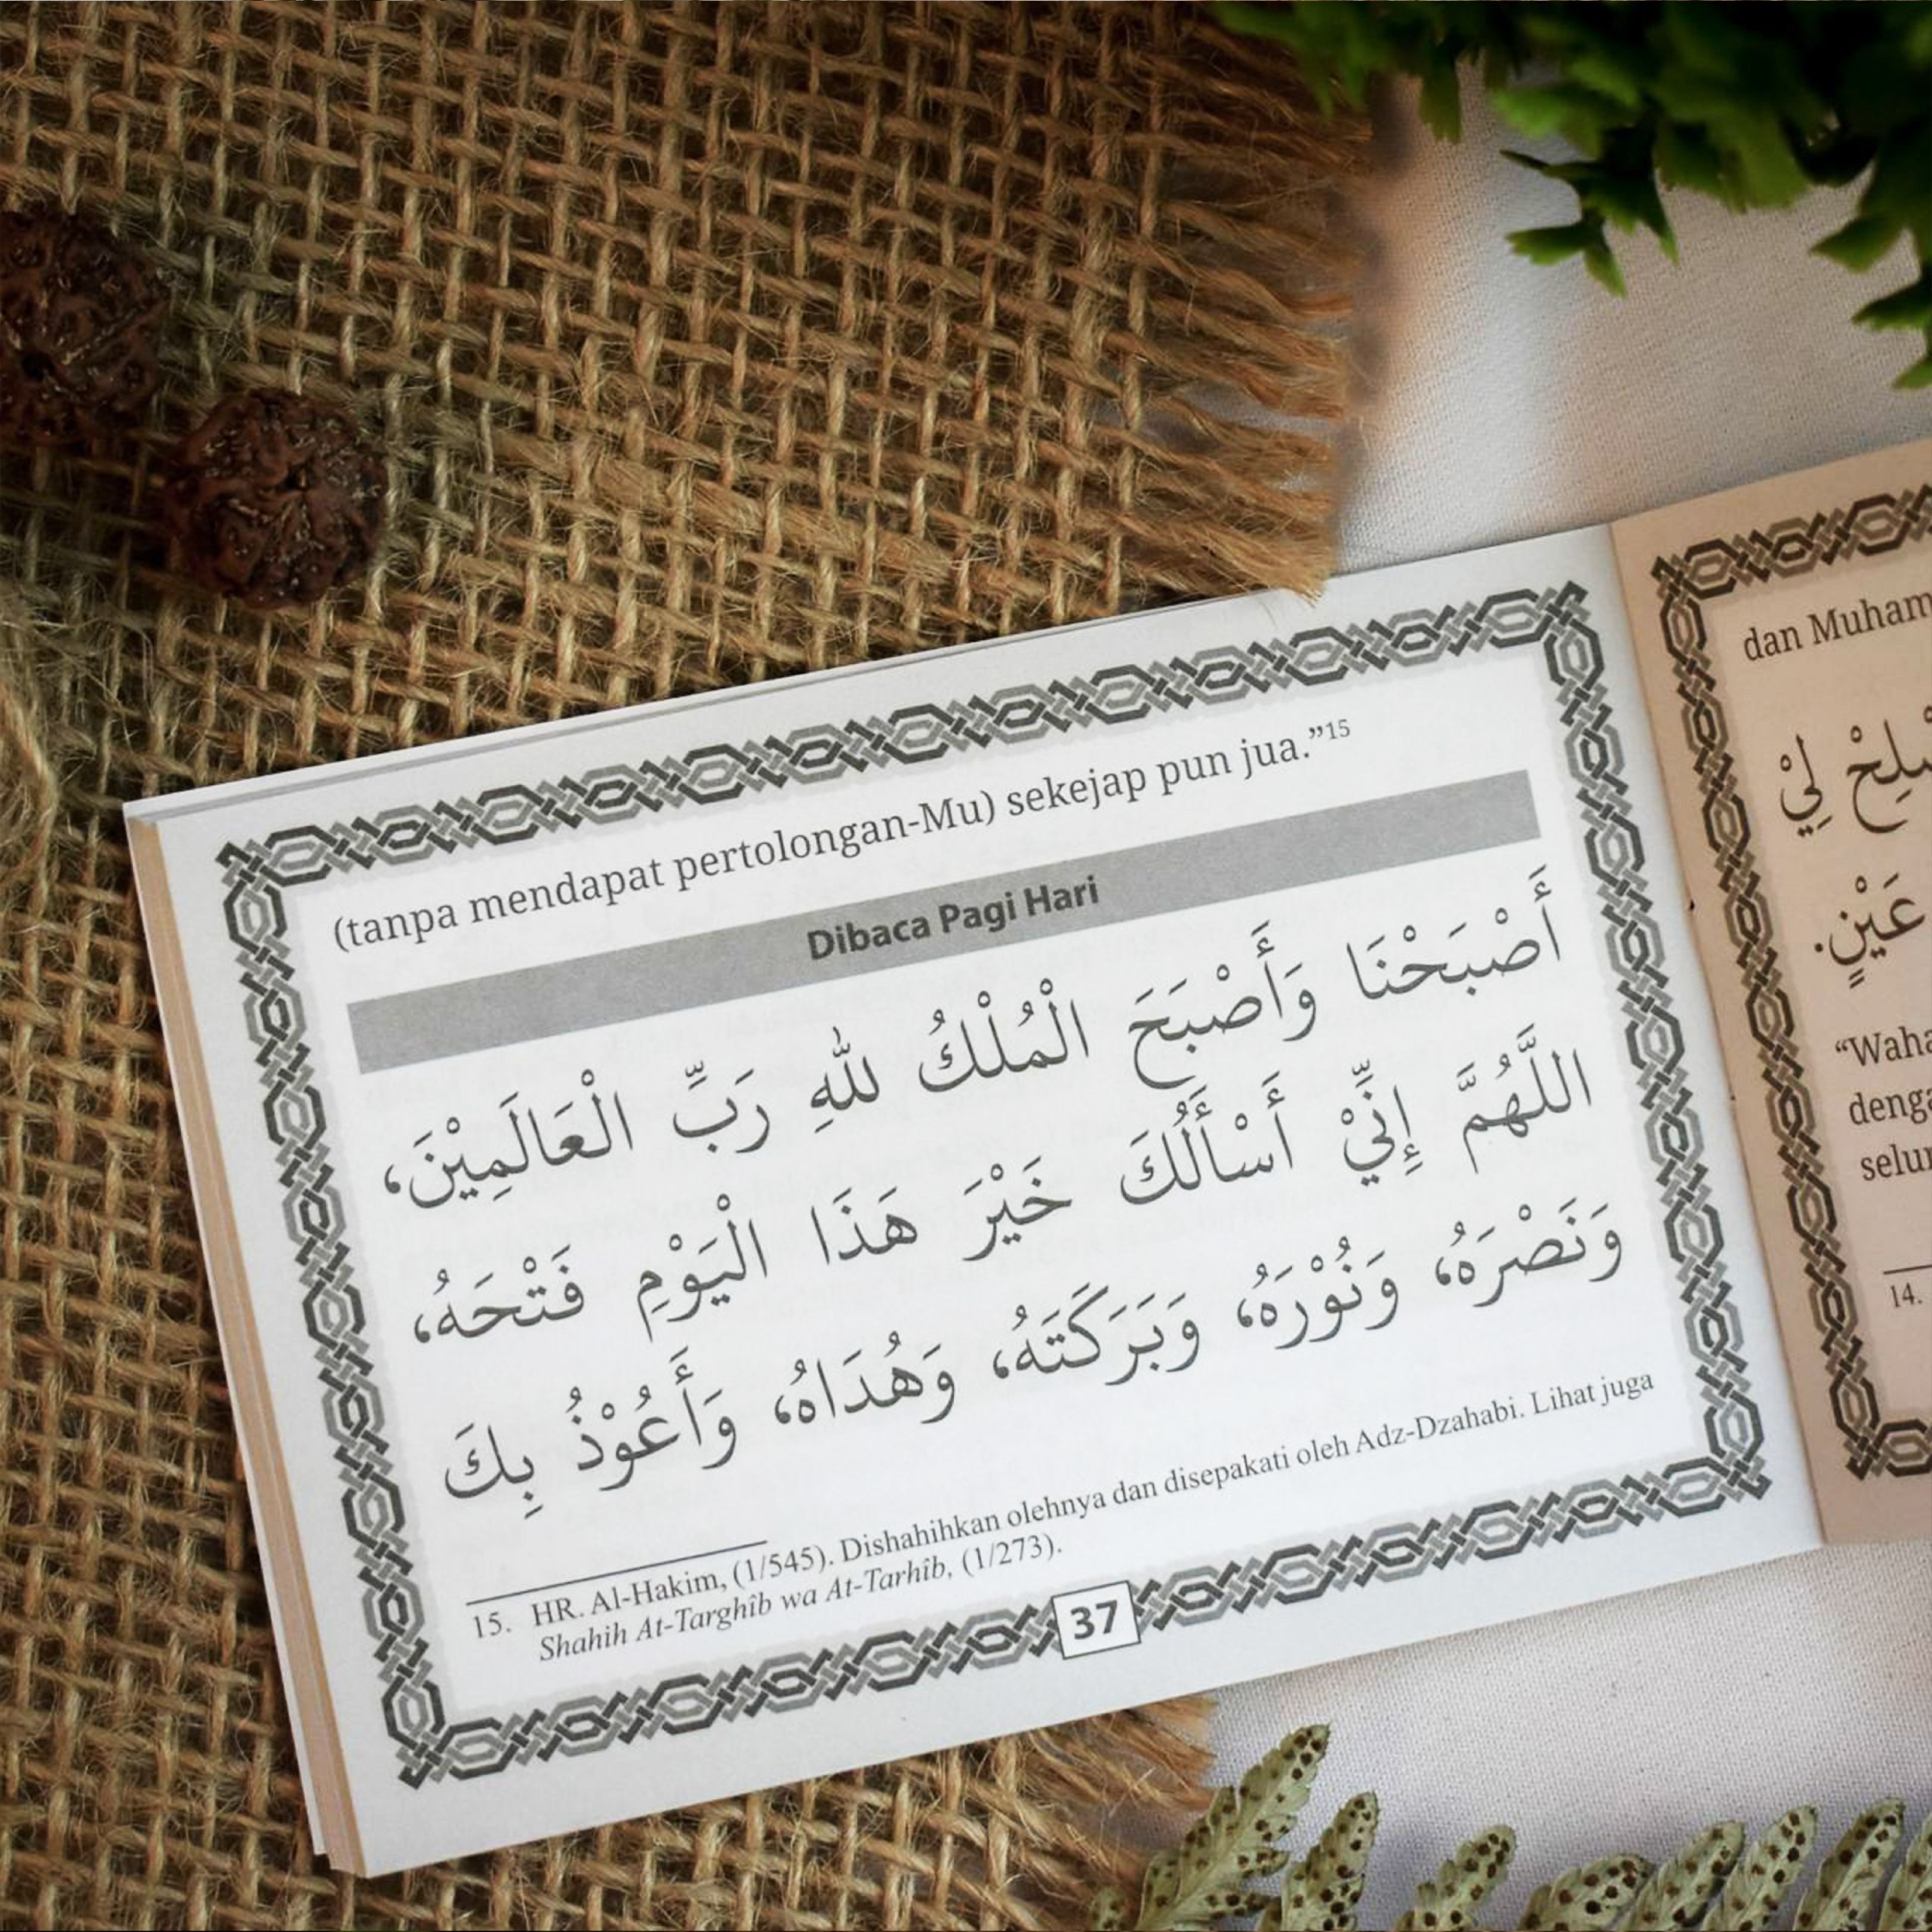 (tanpa mendapat pertolongan-Mu) sekejap pun jua.”15
Dibaca Pagi Hari
أَصْبَحْنَا وَأَصْبَحَ الْمُلْكُ لِلّٰهِ رَبِّ الْعَالَمِيْنَ،
اللَّهُمَّ إِنِّيْ أَسْأَلُكَ خَيْرَ هَذَا الْيَوْمِ فَتْحَهُ،
وَنَصْرَهُ، وَنُوْرَهُ، وَبَرَكَتَهُ، وَهُدَاهُ، وَأَعُوْذُ بِكَ
15. HR. Al-Hakim, (1/545). Dishahihkan olehnya dan disepakati oleh Adz-Dzahabi. Lihat juga
Shahih At-Targhîb wa At-Tarhîb, (1/273).
37
dan Muham
لِيْ
عَيْنٍ.
“Waha
denga
selur
14.